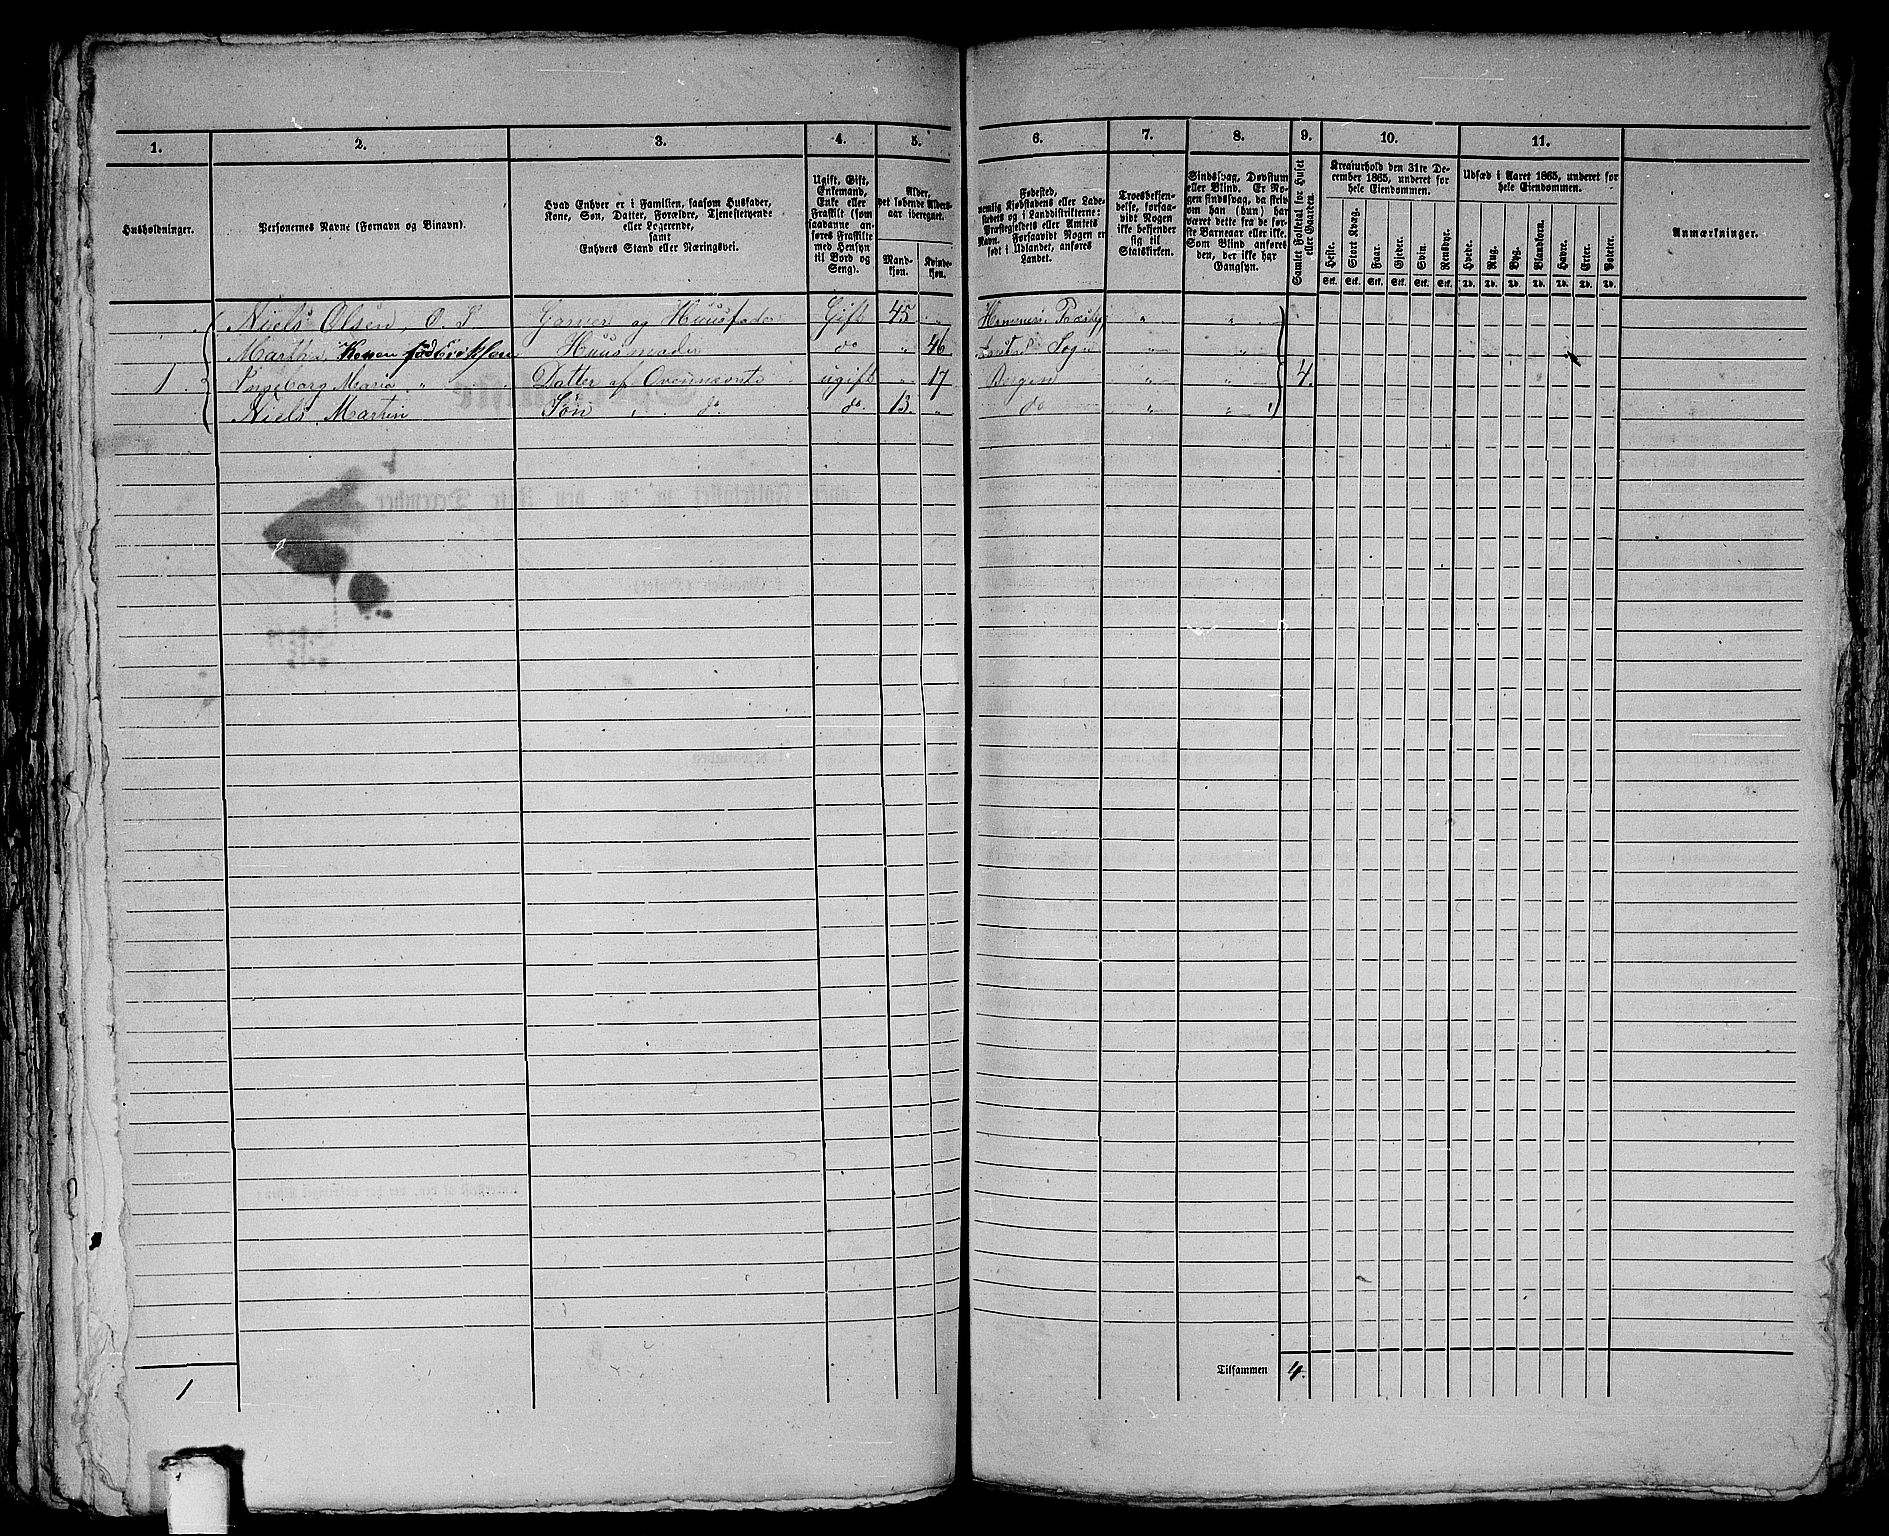 1. 2. 3. 4. 5. 6. 7. 8. 9. 10. 11.
Husholdninger.
Personernes Navne (Fornavn og Binavn).
Hvad Enhver er i Familien, saasom Husfader,
Kone, Søn, Datter, Forældre, Tjenestetyende
eller Logerende,
samt
Enhvers Stand eller Næringsvei.
Ugift, Gift,
Enkemand,
Enke eller
Fraskilt (som
saadanne an-
føres Fraskilte
med Hensyn
til Bord og
Seng).
Alder,
det løbende Alders-
aar iberegnet.
Mand-
kjøn.
Kvinde-
kjøn.
Fødested,
nemlig Kjøbstadens eller Lade-
stedets og i Landdistrikterne:
Præstegjeldets eller Amtets
Navn. Forsaavidt Nogen er
født i Udlandet, anføres
Landet.
Troesbekjen-
delse, forsaa-
vidt Nogen
ikke bekjender
sig til
Statskirken.
Sindssvag, Døvstum
eller Blind. Er No-
gen sindssvag, da skriv
om han (hun) har
været dette fra de før-
ste Barneaar eller ikke.
Som Blind anføres
den, der ikke har
Gangsyn.
Samlet Folketal for Huset
eller Gaarden.
Kreaturhold den 31te De-
cember 1865, underet for
hele Eiendommen.
Heste. Stort Kvæg. Faar. Gjeder. Svin. Rensdyr.
Stk. Stk. Stk. Stk. Stk. Stk.
Udsæd i Aaret 1865, underet for
hele Eiendommen.
Hvede. Rug. Byg. Blandkorn. Havre. Erter. Poteter.
Td. Td. Td. Td. Td. Td. Td.
Anmærkninger.
Niels Olsen, O. S Garver og Huusfader Gift 45 " "
Marthe Konen Huusmoder do " 46 Sogn " "
1 Ingeborg Maria " Datter af Ovennævnte ugift " 17 Bergen " " 4.
Niels Martin Søn " do do. 13 " do " "
Tilsammen 4.
1